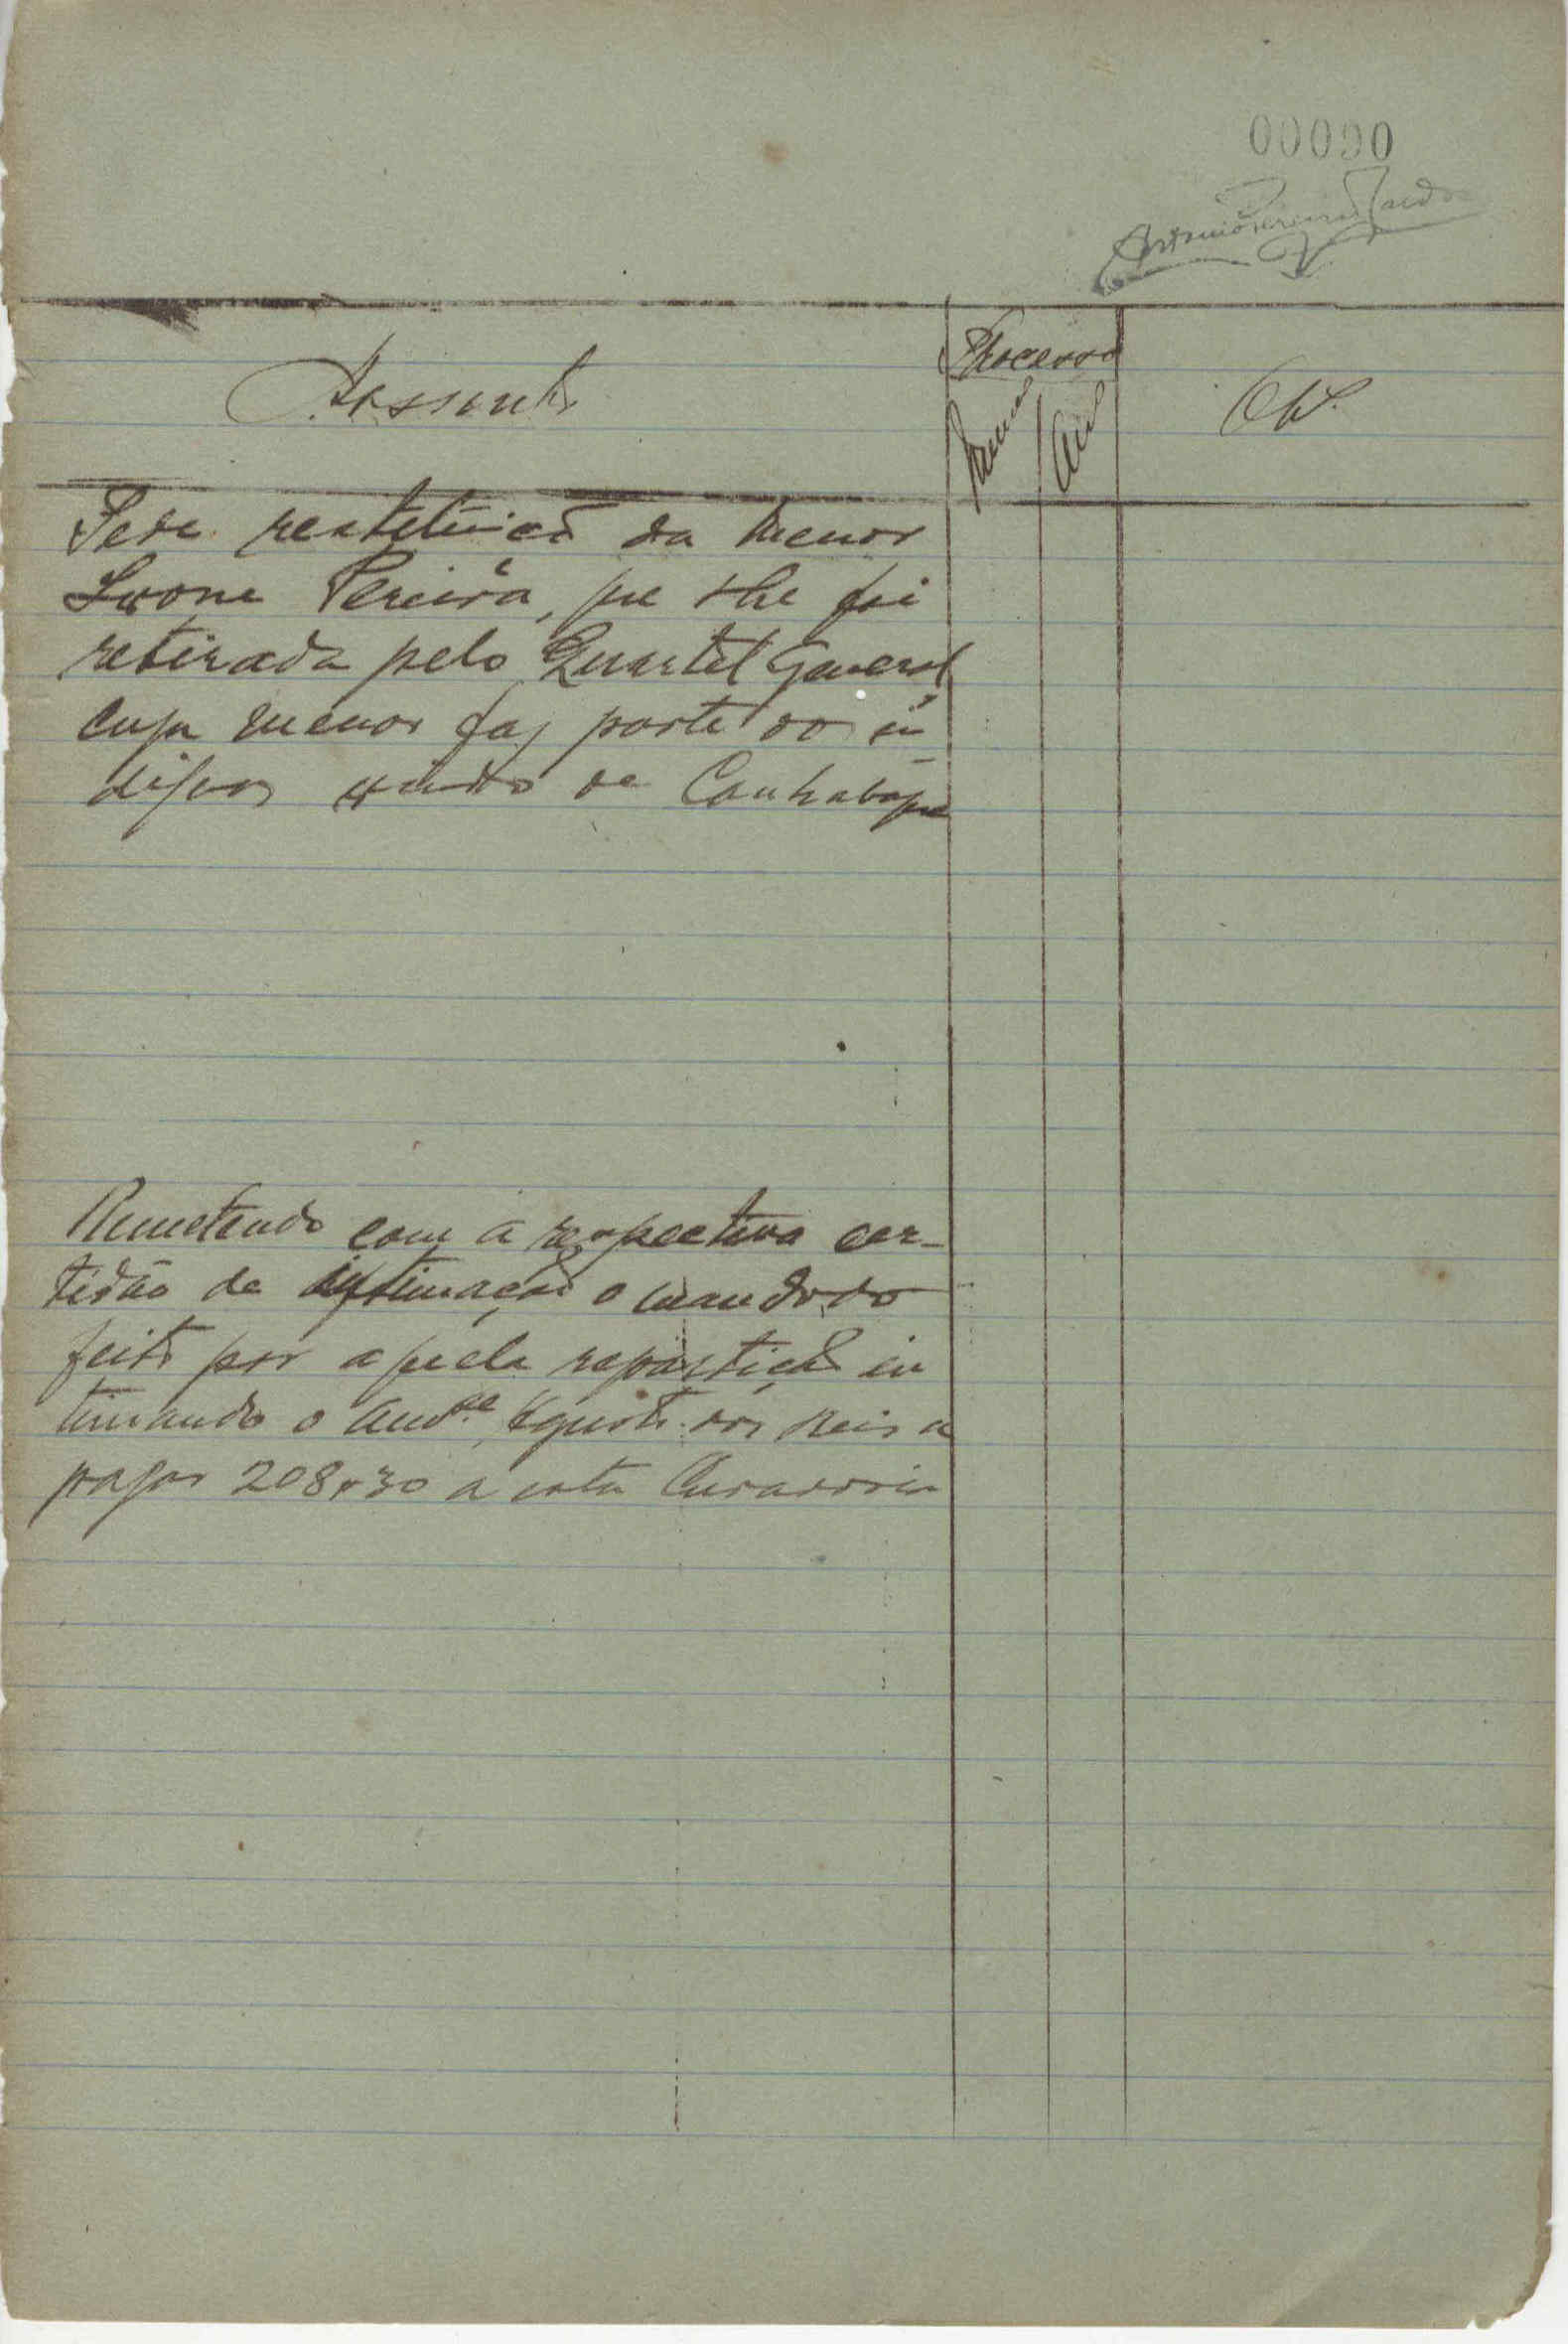 00090
Antonio Pereira
Assunto
Processo
Numero
Ano
Obs.
Pede restetuicao da menor
Ivone Pereira, que lhe foi
retirada pelo Quartel General,
cuja menor faz parte do in
digenas vindo de
Remetendo com a respectiva cer-
tidão de intimação o mandado
feito por aquela repartição in
timando o Augusto dos Reis a
pagar 208,30 a esta Curadoria